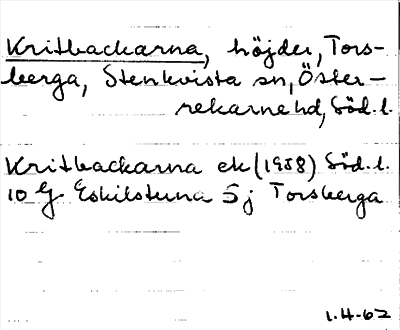 Kritbackarna, höjder, Tors-
berga, Stenkvista sn, Öster-
rekarne hd, Söd. l.
Kritbackarna ek (1958) Söd. l.
10 G Eskilstuna 5 j Torsberga
1.4-62